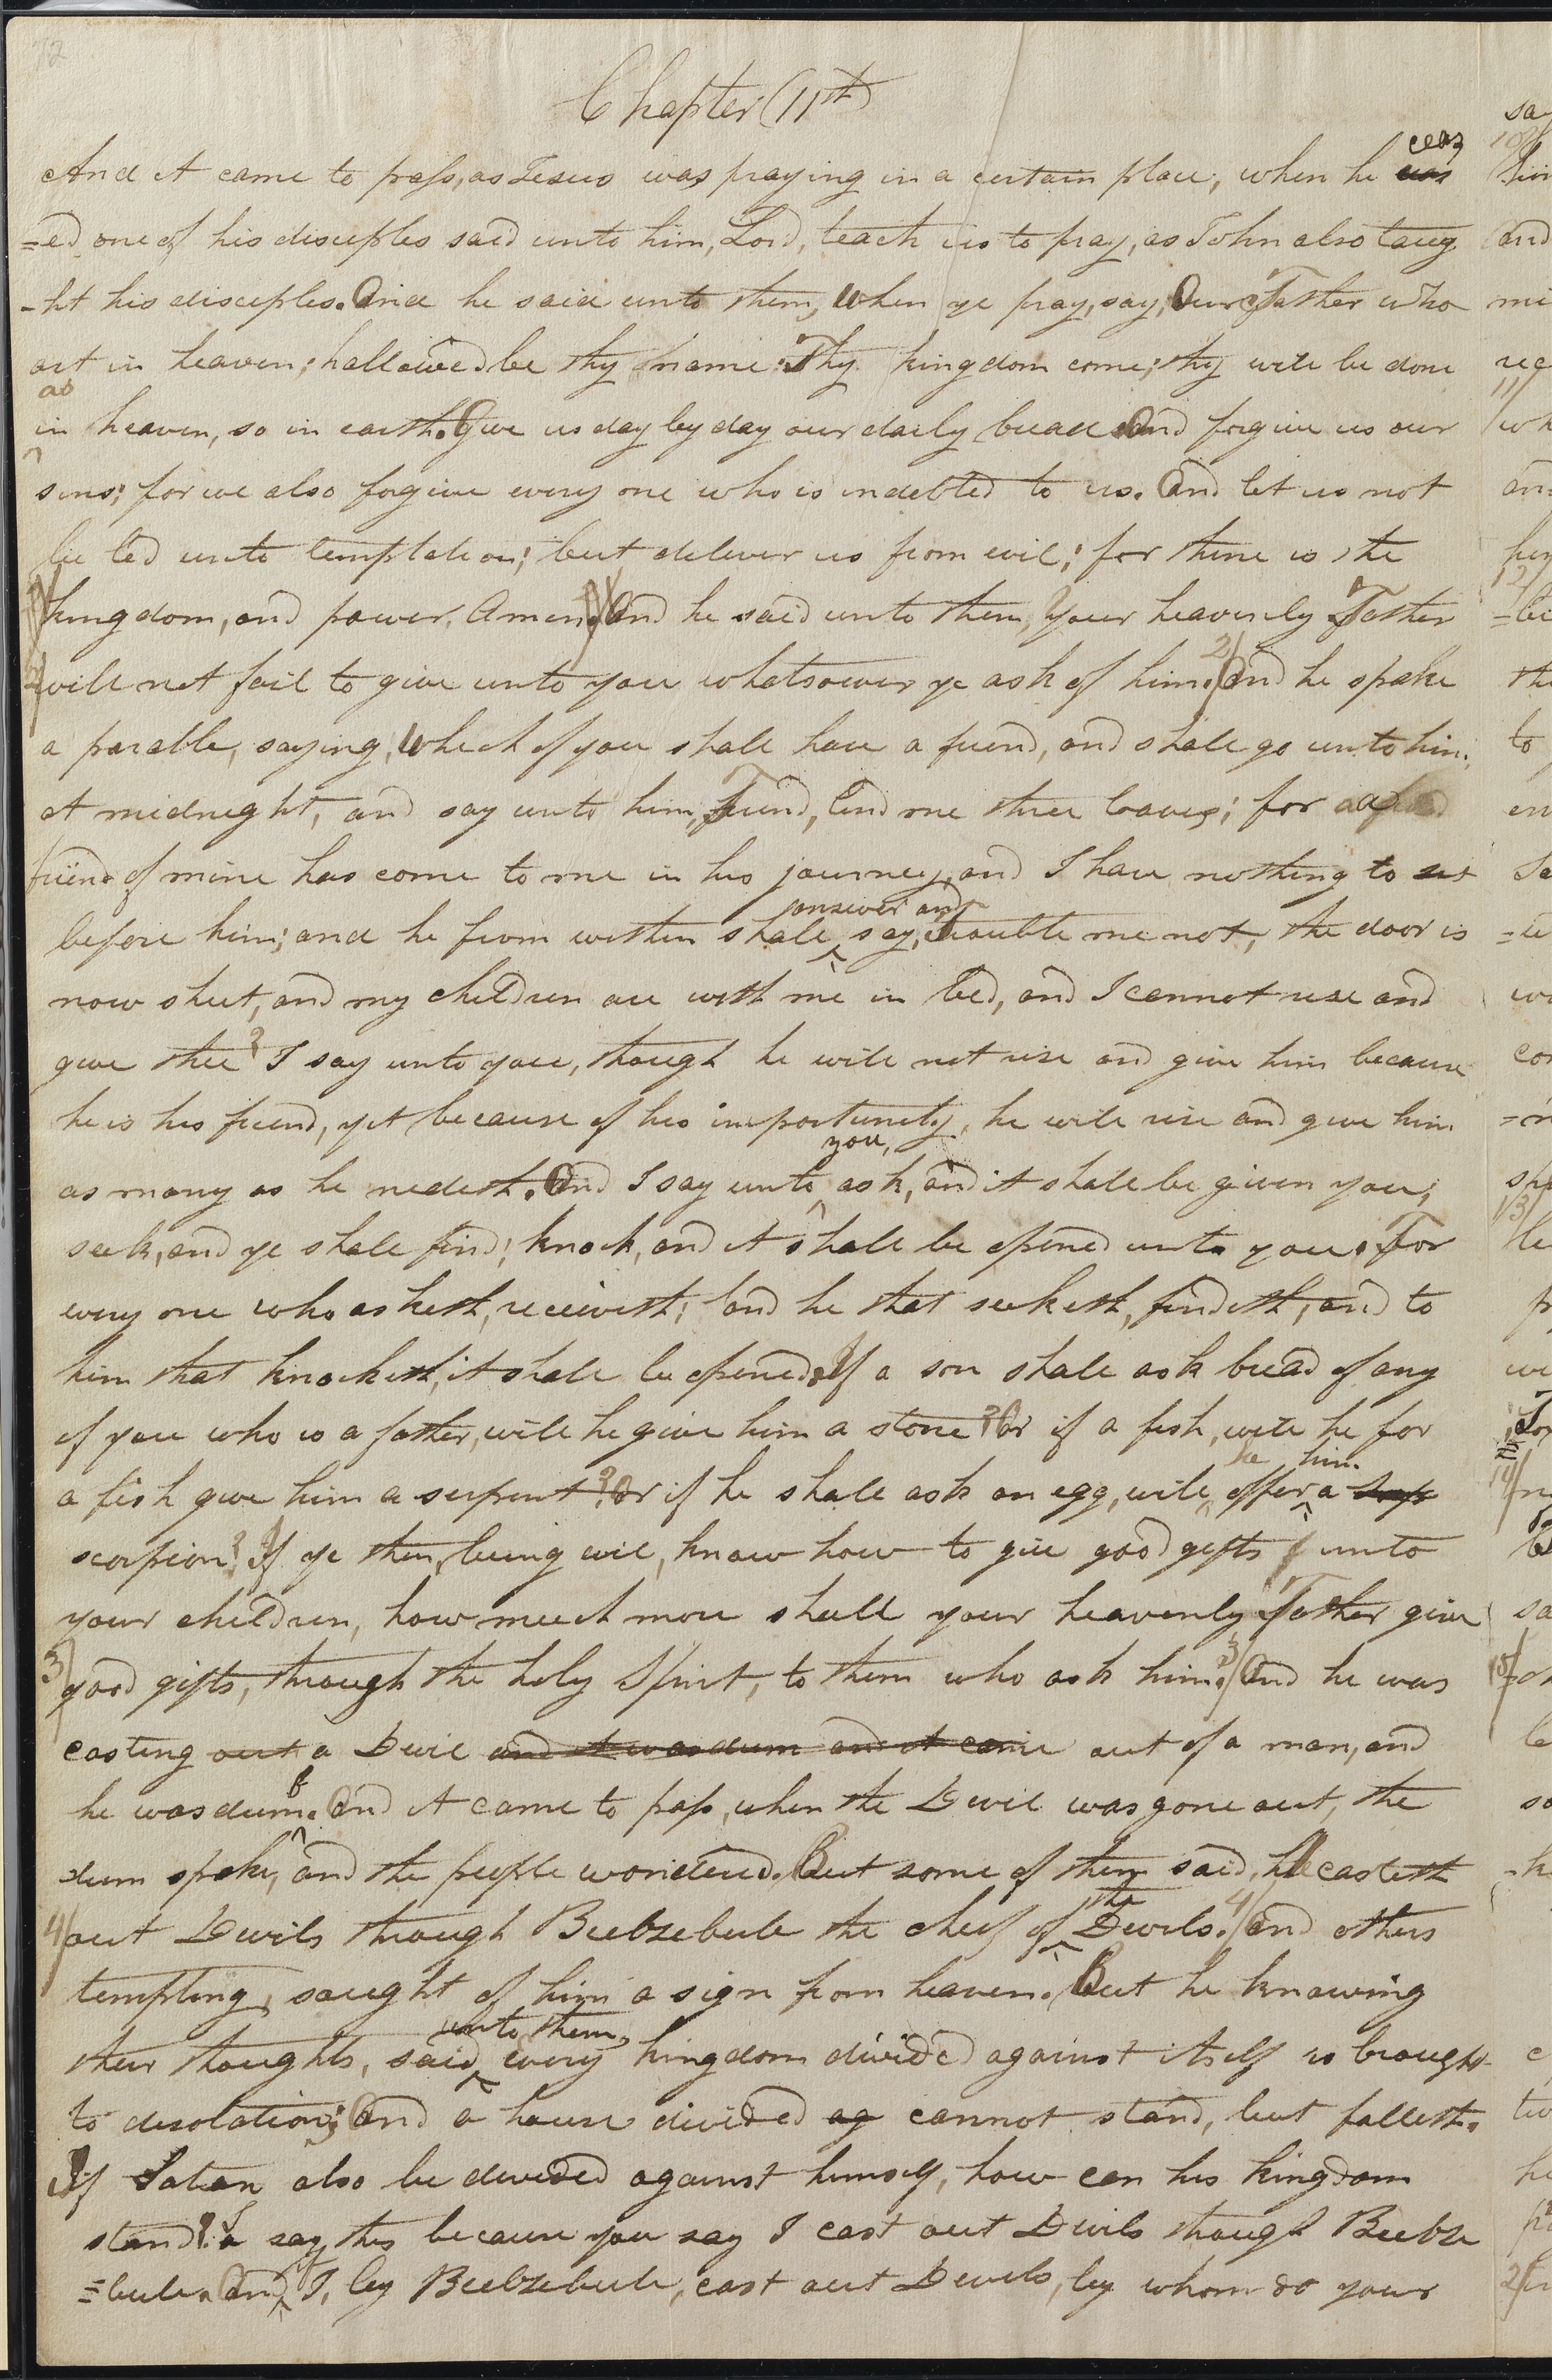 72
Chapter (11th)
And it came to pass, as Jesus was praying in a certain place, when he was ceas
=ed one of his disciples said unto him, Lord, teach us to pray, as John also taug
-ht his disciples. And he said unto them, When ye pray, say, Our Father who
art in heaven; hallowed be thy name. Thy kingdom come; thy will be done
as in heaven, so in earth. Give us day by day our daily bread. And forgive us our
sins; for we also forgive every one who is indebted to us. And let us not
be led unto temptation; but deliver us from evil; for thine is the
kingdom, and power. Amen. And he said unto them, Your heavenly Father
2/ will not fail to give unto you whatsoever ye ask of him. 2/ And he spake
a parable, saying, Which of you shall have a friend, and shall go unto him,
at midnight, and say unto him, Friend, lend me three loaves; for a
friend of mine has come to me in his journey, and I have nothing to set
before him; and he from within shall answer and say, trouble me not, the door is
now shut, and my children are with me in bed, and I cannot rise and
give thee? I say unto you, though he will not rise and give him because
he is his friend, yet because of his importunity, he will rise and give him
as many as he nedeth. And I say unto you, ask, and it shall be given you;
seek, and ye shall find; knock, and it shall be opened unto you. For
every one who asketh, receiveth; and he that seeketh, findeth; and to
him that knocketh, it shall be opened. If a son shall ask bread of any
of you who is a father, will he give him a stone? Or if a fish, will he for
a fish give him a serpent? Or if he shall ask an egg, will he offer him a
scorpion? If ye then, being evil, know how to give good gifts unto
your children, how much more shall your heavenly Father give
3/ good gifts, through the holy Spirit, to them who ask him. 3/ And he was
casting out a Devil and it was dum and it came out of a man, and
he was dumb. And it came to pass, when the Devil was gone out, the
-dum spake, and the people wondered. But some of them said, he casteth
4/ out Devils through Beebzebule the chief of the Devils. 4/ And others
tempting, saught of him a sign from heaven. But he knowing
their thoughts, said unto them, every kingdom divided against itself is brought
to desolation; and a house divided ag cannot stand, but falleth.
If Satan also be divided against himself, how can his kingdom
stand? I say this because you say I cast out Devils though Beebze
=bule. And if I, by Beebzebule, cast out Devils, by whom do your